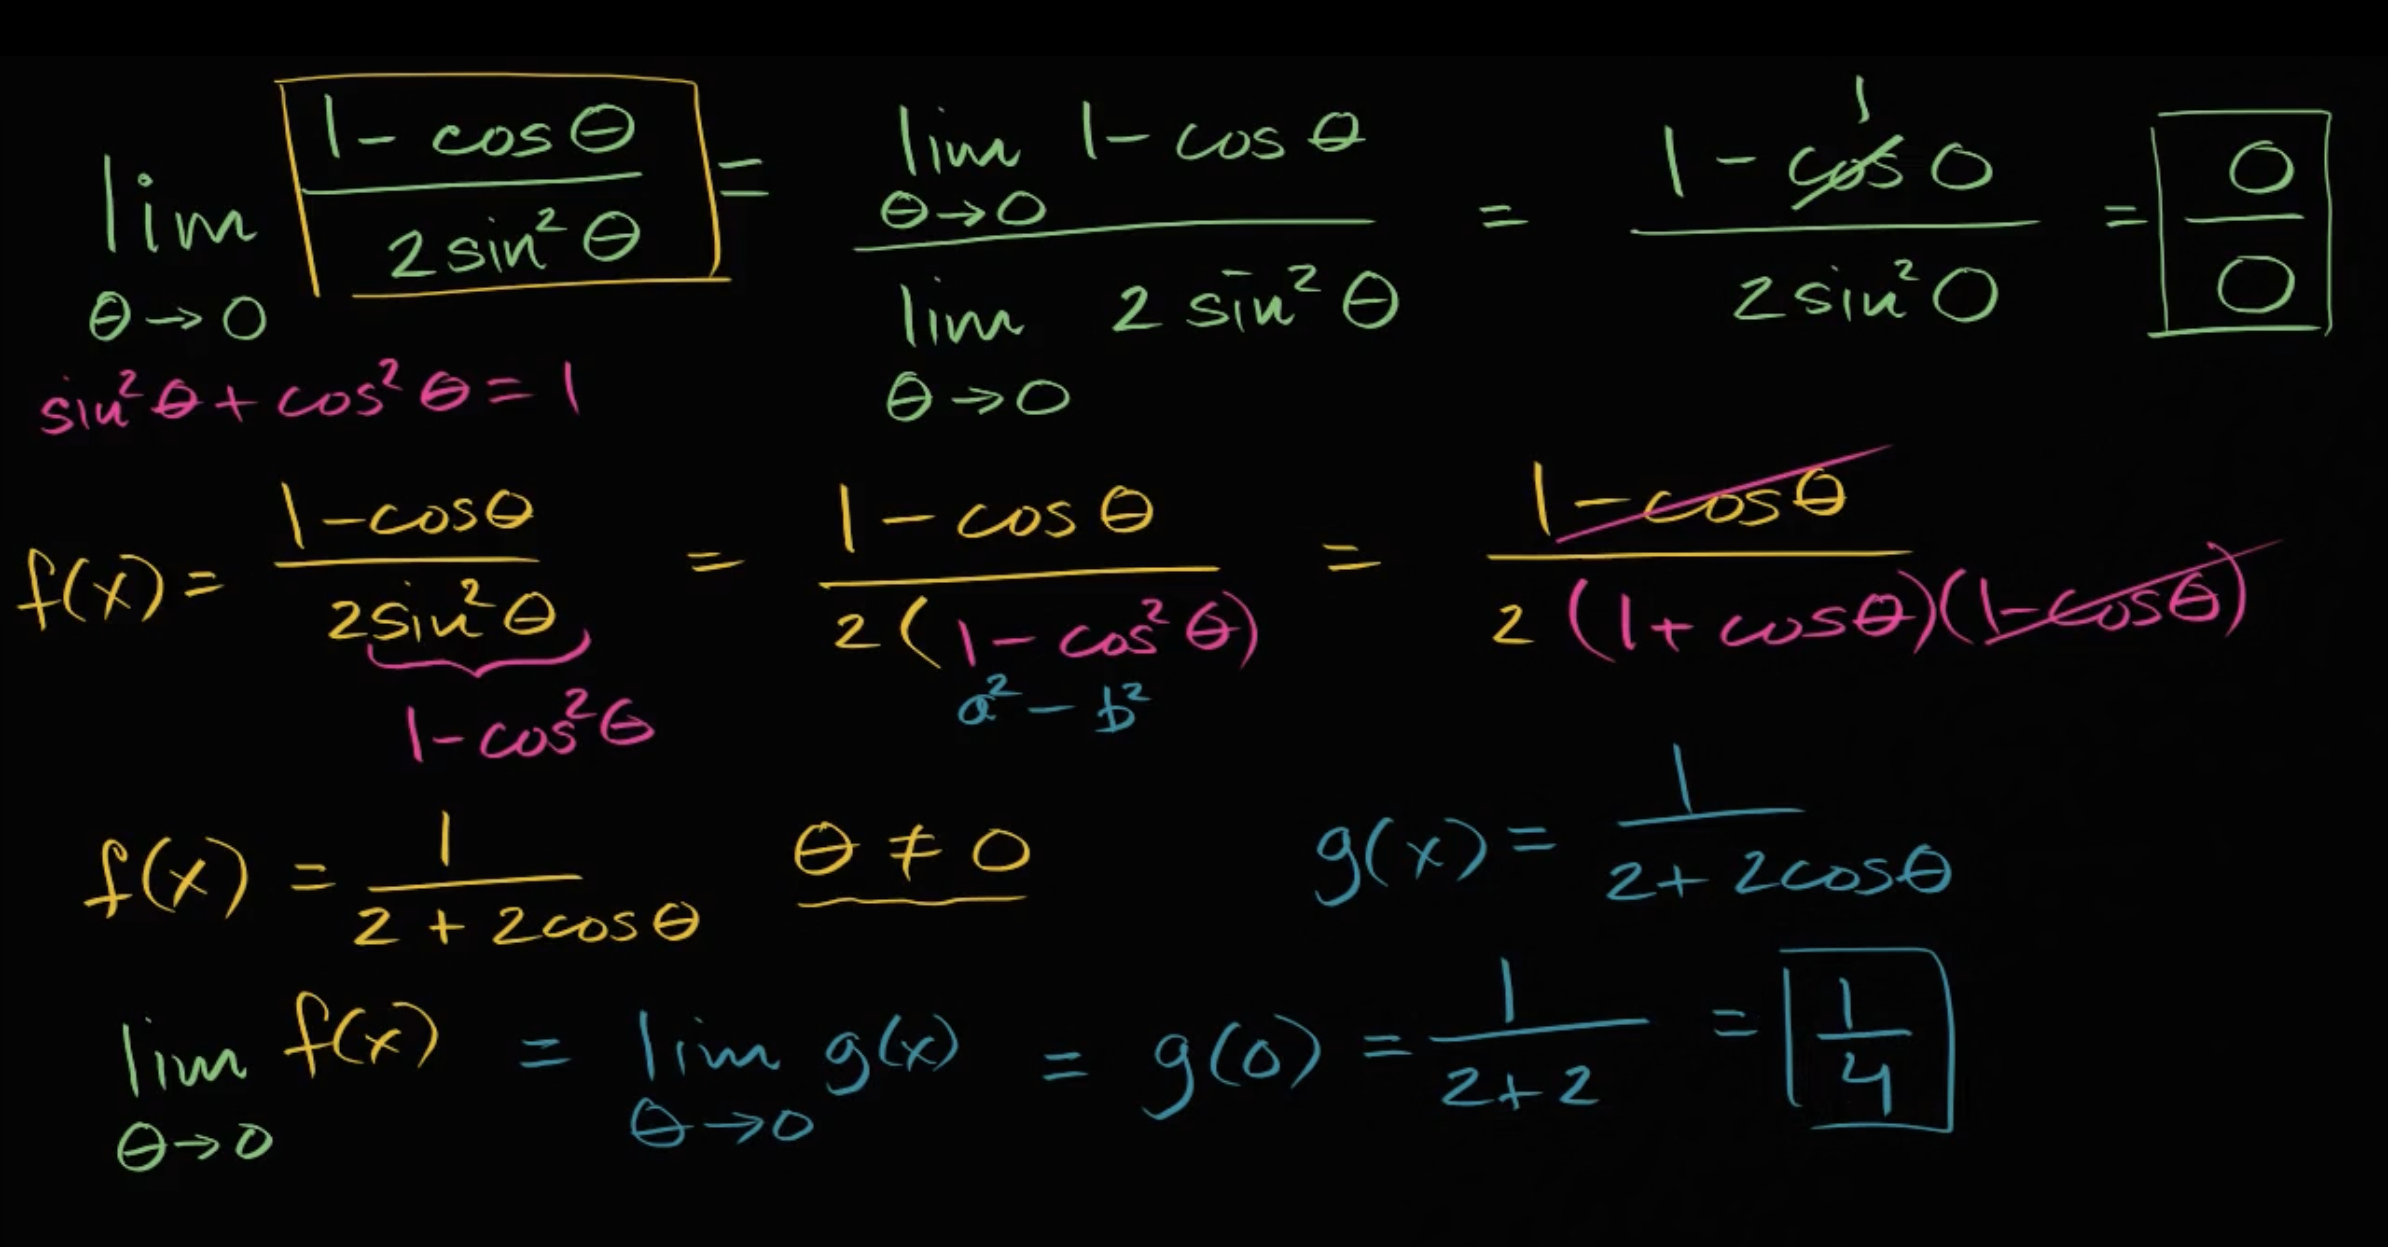 lim θ→0 (1 - cos θ)/(2 sin² θ) = (lim θ→0 1 - cos θ)/(lim θ→0 2 sin² θ) = (1 - cos 0)/(2 sin² 0) = 0/0
1
sin² θ + cos² θ = 1
f(x) = (1 - cos θ)/(2 sin² θ) = (1 - cos θ)/(2 (1 - cos² θ)) = (1 - cos θ)/(2 (1 + cos θ)(1 - cos θ))
1 - cos² θ
a² - b²
f(x) = 1/(2 + 2 cos θ) θ ≠ 0 g(x) = 1/(2 + 2 cos θ)
lim θ→0 f(x) = lim θ→0 g(x) = g(0) = 1/(2 + 2) = 1/4